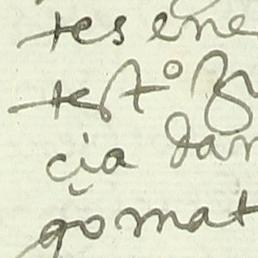 tes ene
testº
çia dar
gomat